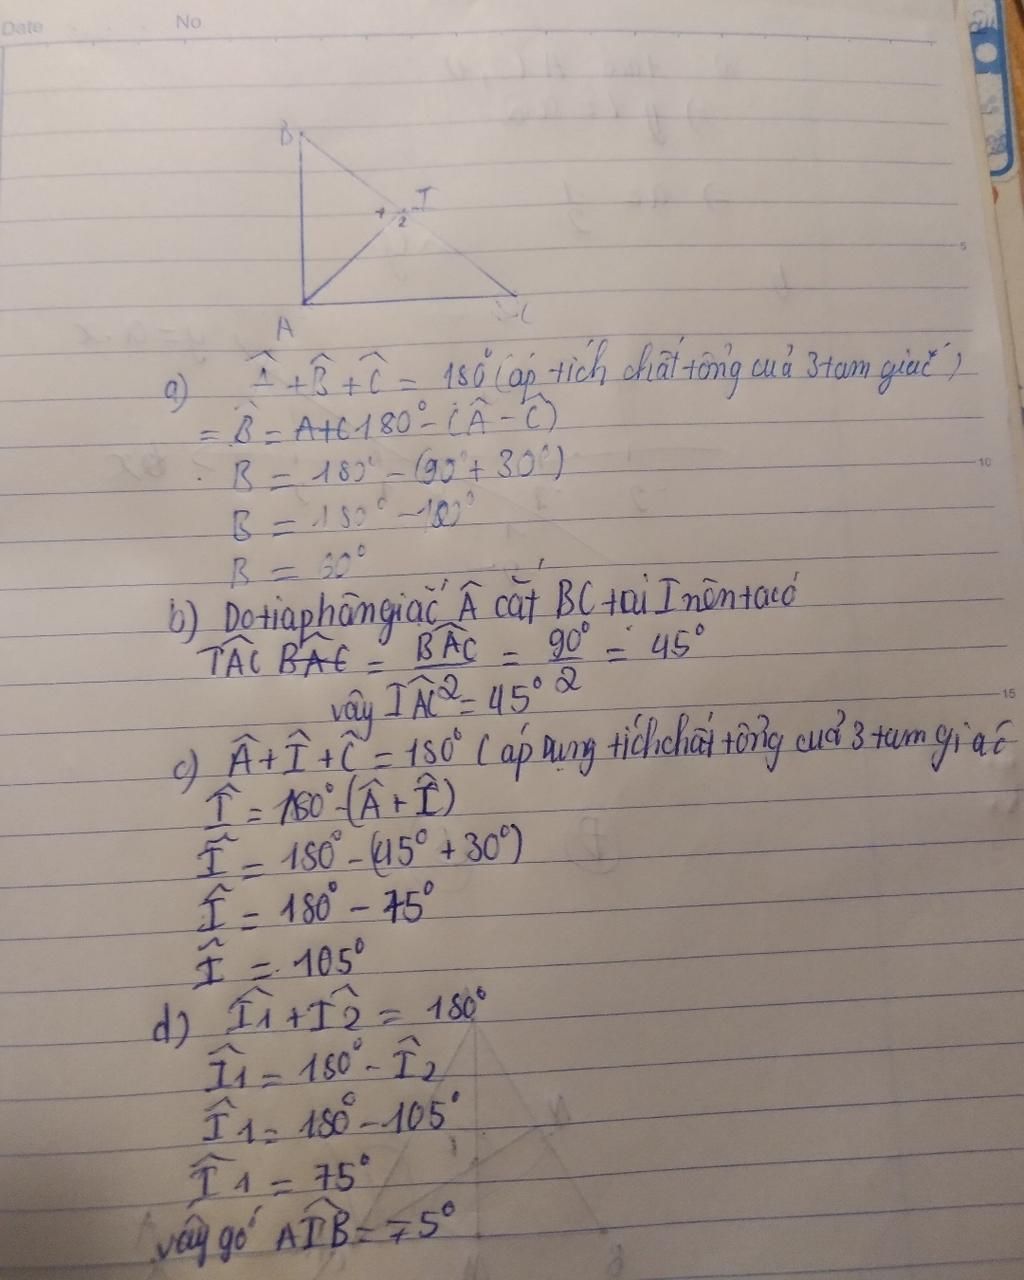 Date No
B
I
1 2
A
C
5
a) Â + B̂ + Ĉ = 180° (áp tích chất tổng cuả 3 tam giác)
= B̂ = A+C 180° - (Â - Ĉ)
B = 180° - (90° + 30°)
10
B = 180° -
B = 60°
b) Do tia phân giác Â cắt BC tại I nên ta có
IAC BAC = BAC/2 = 90°/2 = 45°
vậy IAC = 45°
15
c) Â + Î + Ĉ = 180° (áp dụng tích chất tổng cuả 3 tam giác
Î = 180° - (Â + Î)
Î = 180° - (45° + 30°)
Î = 180° - 75°
Î = 105°
d) Î1 + Î2 = 180°
Î1 = 180° - Î2
Î1 = 180° - 105°
Î1 = 75°
vậy gó AIB = 75°